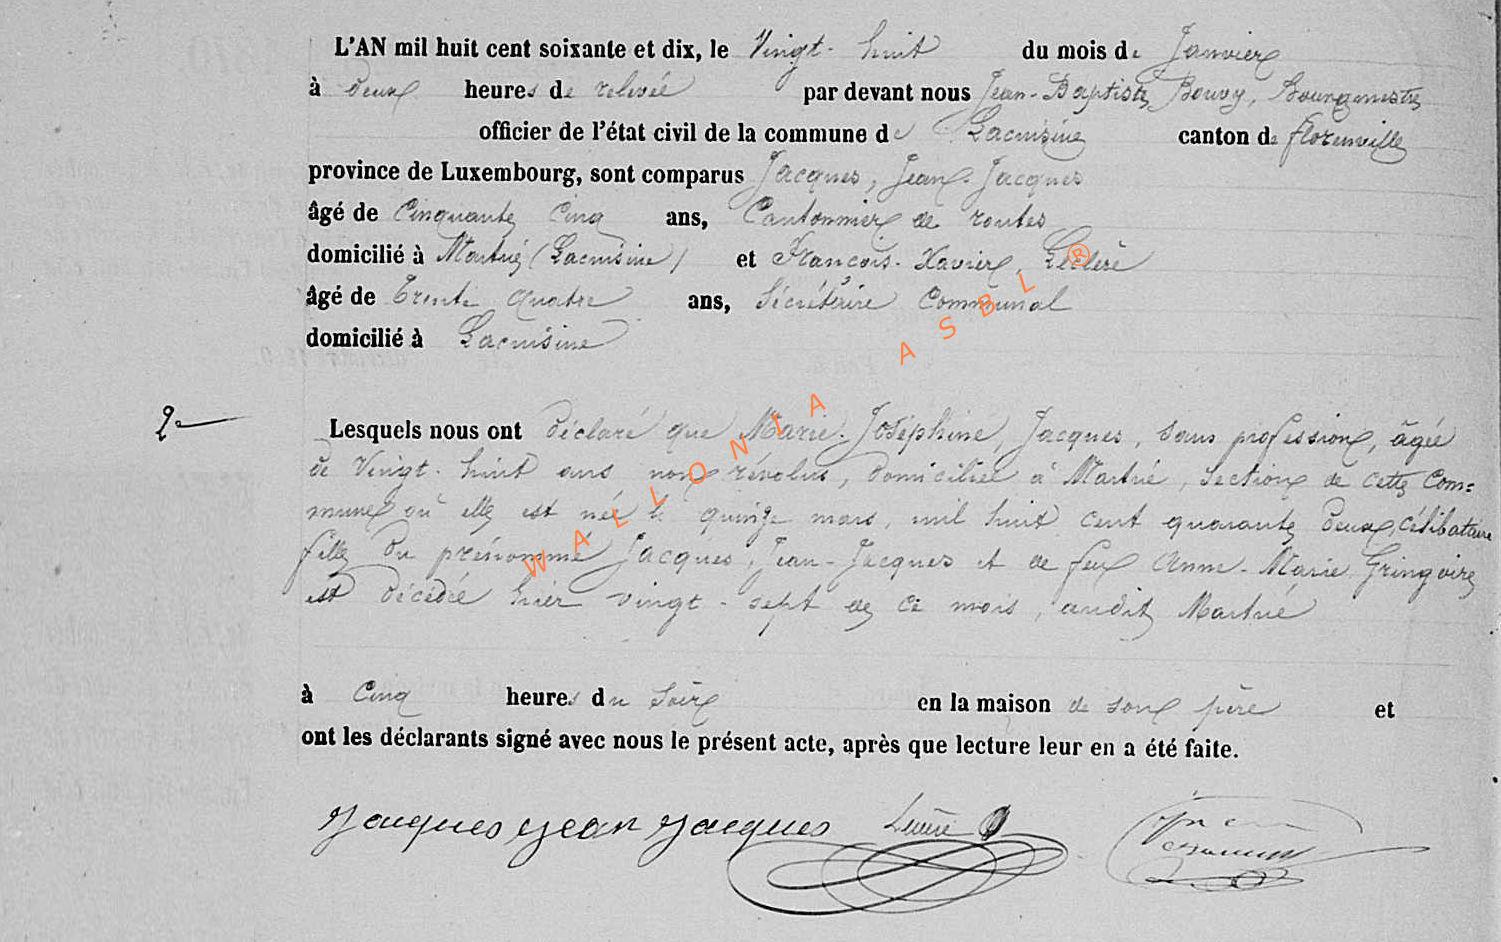 L'AN mil huit cent soixante et dix, le Vingt-huit du mois de Janvier
à deux heures de relevée par devant nous Jean-Baptiste Bouvy, Bourgmestre
officier de l'état civil de la commune de Lacuisine canton de florenville
province de Luxembourg, sont comparus Jacques, Jean-Jacques
âgé de Cinquante Cinq ans, Cantonnier de routes
domicilié à Martué (Lacuisine) et François-Xavier
âgé de Trente quatre ans, Sécrétaire Communal
domicilié à Lacuisine
2e
Lesquels nous ont déclaré que Marie-Joséphine Jacques, sans profession, âgée
de Vingt-huit ans non révolus, domiciliée à Martué, section de cette Com=
mune où elle est née le quinze mars, mil huit cent quarante deux, célibataire
fille du prénommé Jacques, Jean-Jacques et de feu Anne-Marie Gringoire
est décédée hier vingt-sept de ce mois, audit Martué
à Cinq heures du soir en la maison de son père et
ont les déclarants signé avec nous le présent acte, après que lecture leur en a été faite.
Jacques jean jacques
WALLONIA ASBL ®